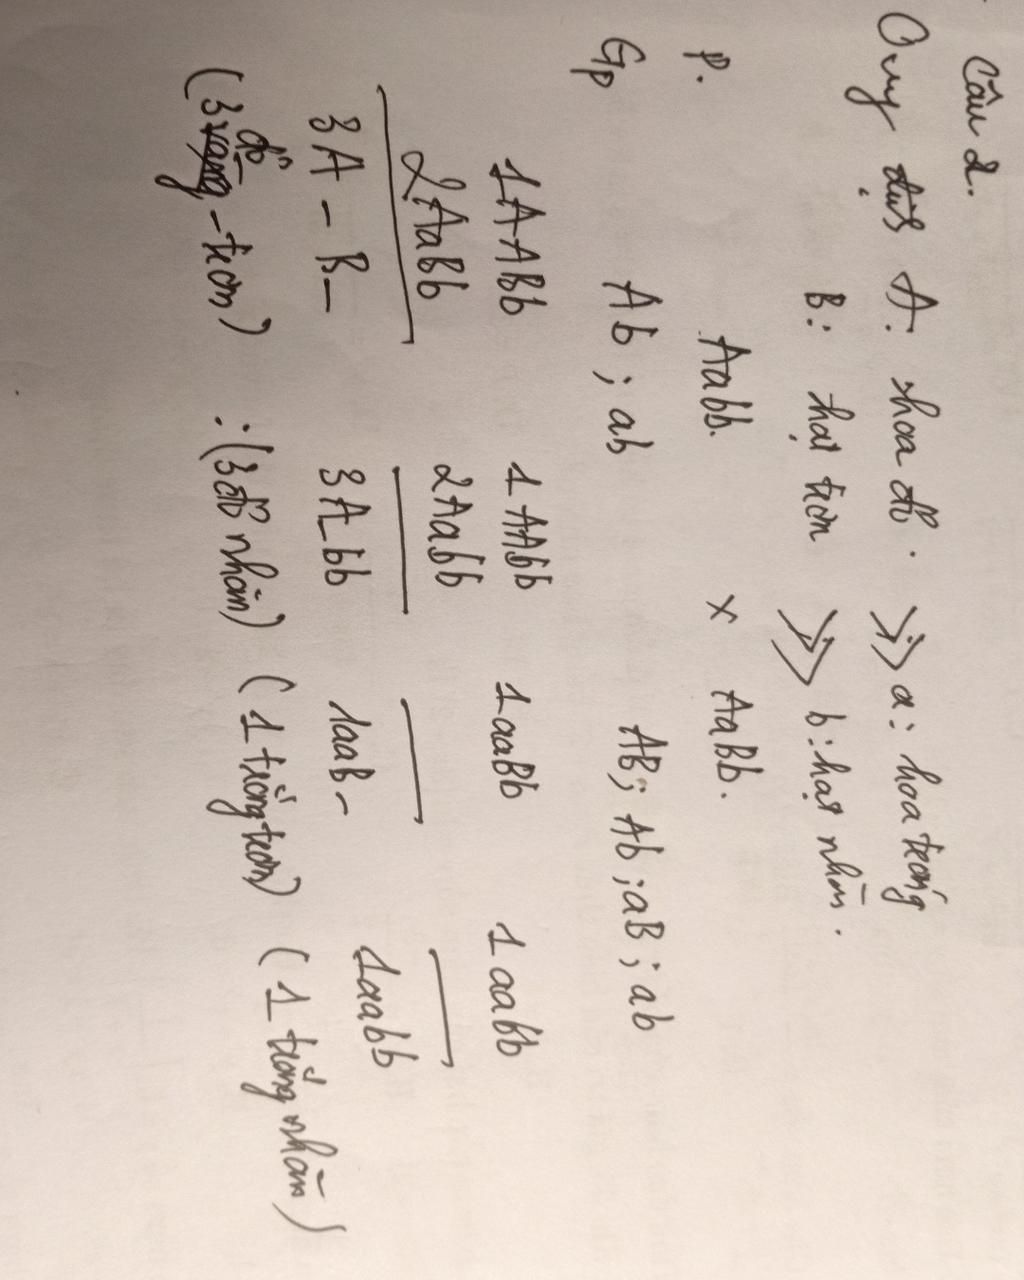 Câu 2.
Quy định A: hoa đỏ. >> a: hoa trắng
B: hạt trơn >> b: hạt nhăn.
P. Aabb. x AaBb.
Gp Ab ; ab AB; Ab ; aB ; ab
1AABb 1AAbb 1aaBb 1aabb
2AaBb 2Aabb
3A-B- 3A_bb 1aaB- 1aabb
(3 đỏ - trơn) : (3 đỏ nhăn) (1 trắng trơn) (1 trắng nhăn)